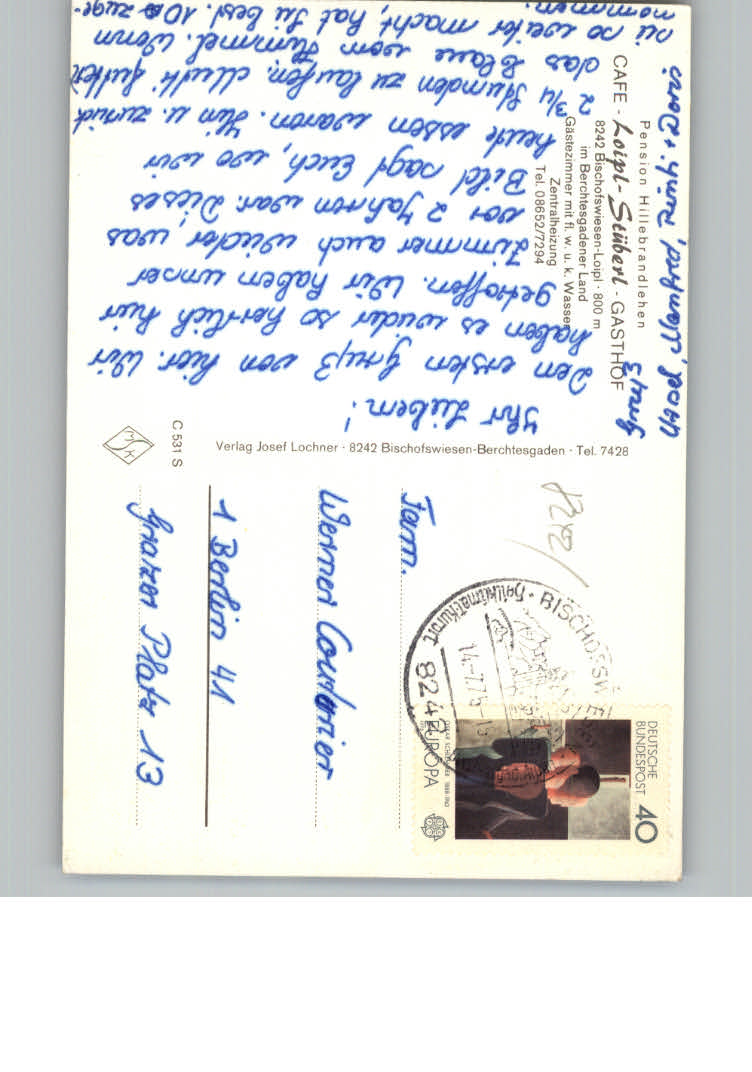 Pension Hillebrandlehen
CAFE - Loipl-Stüberl - GASTHOF
8242 Bischofswiesen-Loipl · 800 m
im Berchtesgadener Land
Gästezimmer mit fl. w. u. k. Wasser
Zentralheizung
Tel. 08652/7294
Ihr Lieben!
Den ersten Gruß von hier. Wir
haben es wieder so herrlich hier
getroffen. Wir haben unser
Zimmer auch wieder was
vor 2 Jahren war. Dieses
Bild sagt Euch, wo wir
heute essen waren. Hin u. zurück
2 3/4 Stunden zu laufen. Mutti futtert
das Blaue vom Himmel. Wenn
sie so weiter macht, hat sie best. 10 zuge-
nommen.
Gruß
Manfred, + Doris
Verlag Josef Lochner · 8242 Bischofswiesen-Berchtesgaden · Tel. 7428
C 531 S
MSK
8242/
DEUTSCHE
BUNDESPOST
40
EUROPA
8242 BISCHOFSWIESEN
Heilklimat. Kurort
14.-7.75
Fam.
Werner
1 Berlin 41
Grazer Platz 13